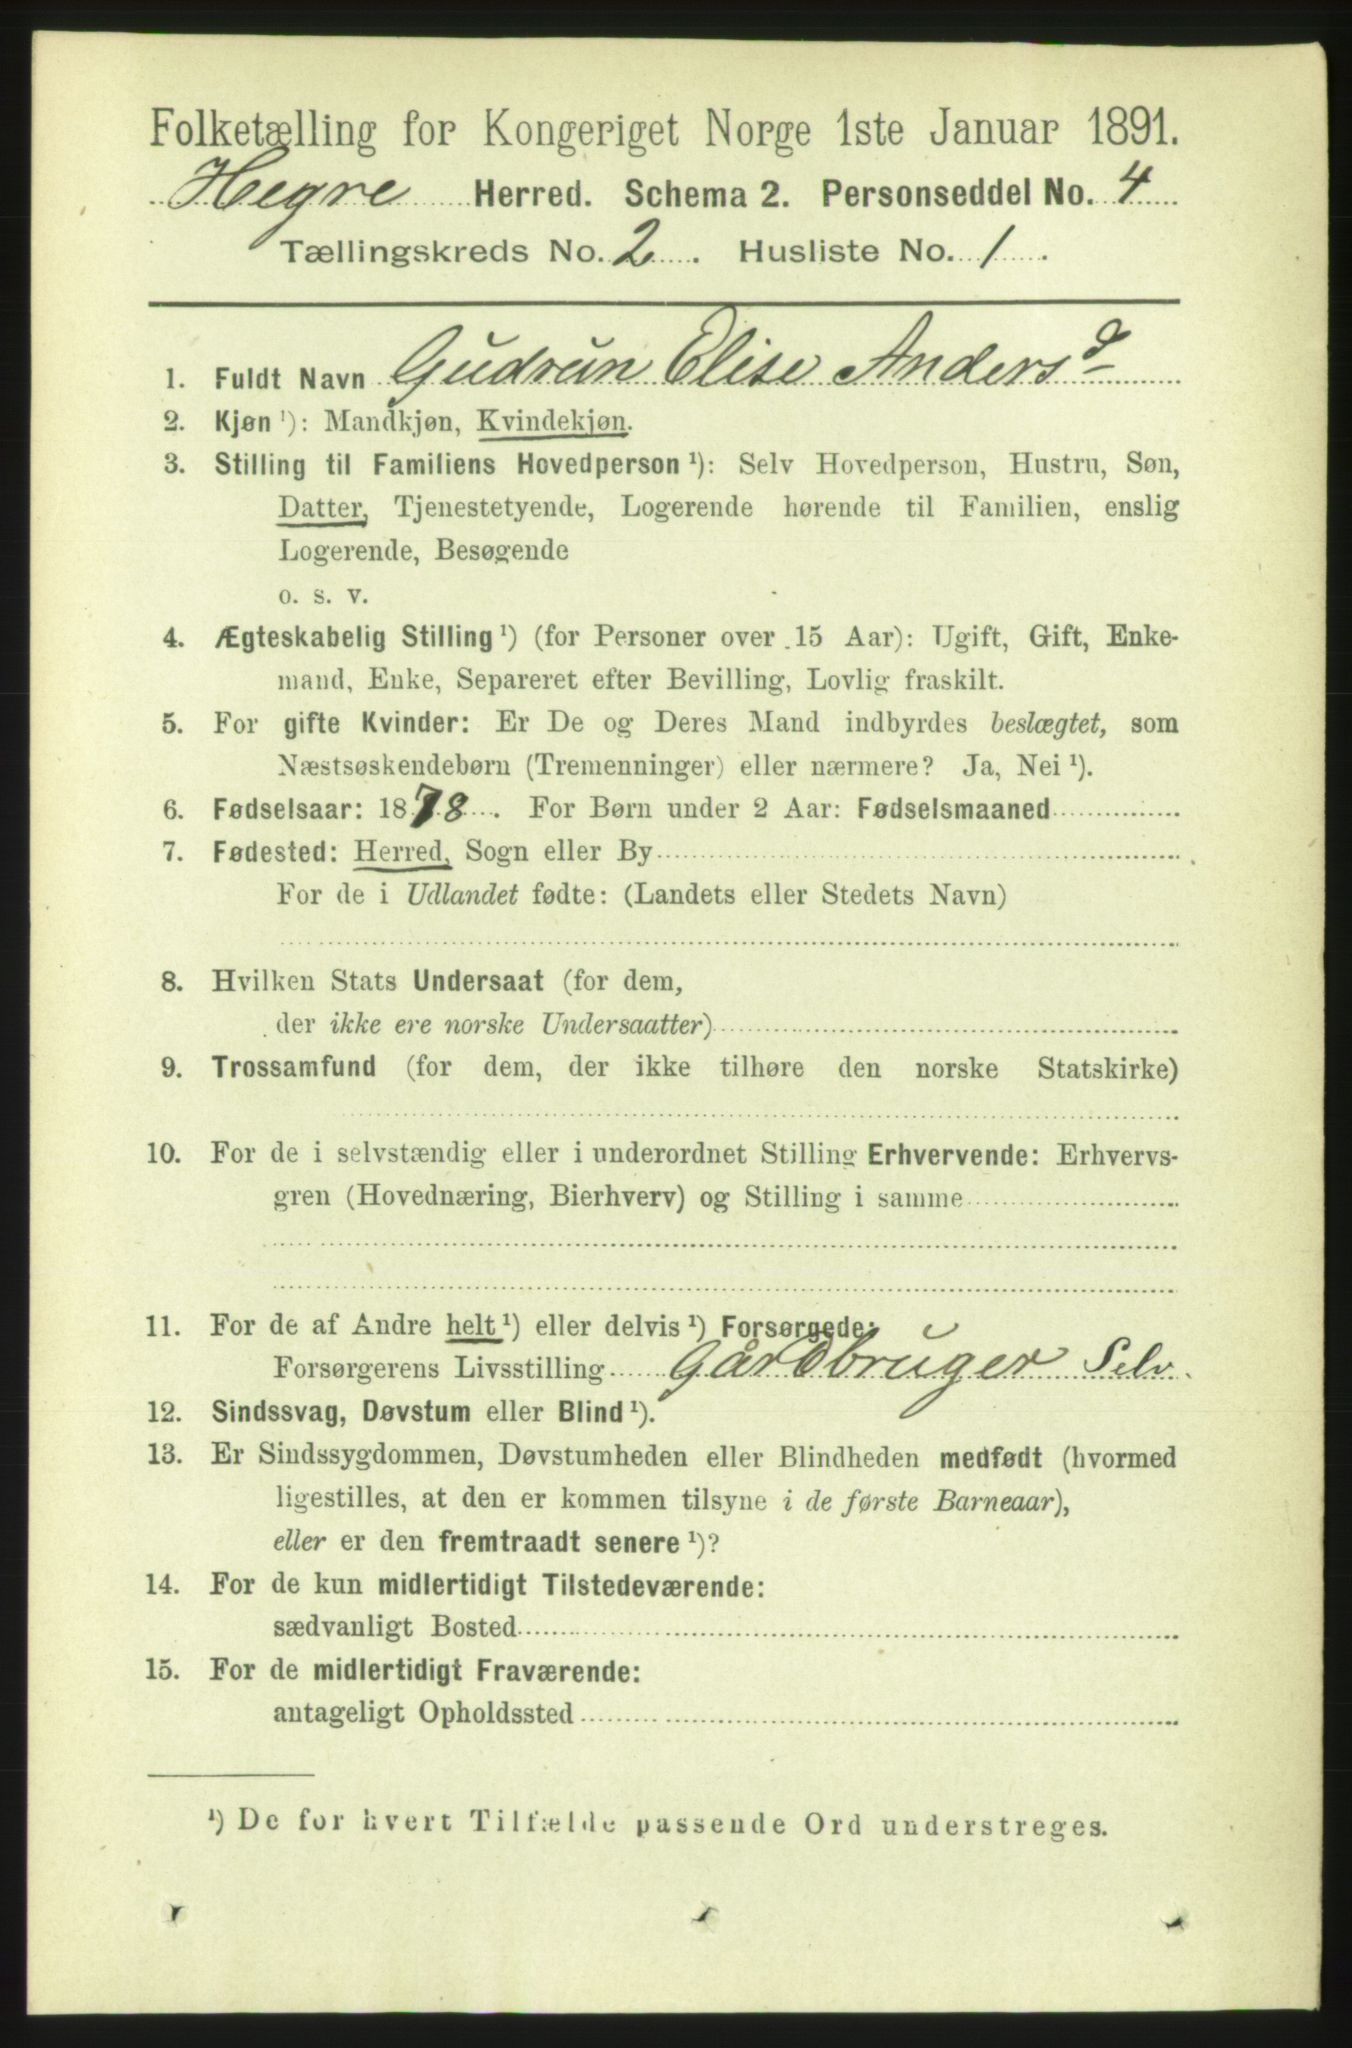 Folketælling for Kongeriget Norge 1ste Januar 1891.
Hegre Herred. Schema 2. Personseddel No. 4
Tællingskreds No. 2. Husliste No. 1.
1. Fuldt Navn Gudrun Elise Andersd
2. Kjøn ¹): Mandkjøn, Kvindekjøn.
3. Stilling til Familiens Hovedperson ¹): Selv Hovedperson, Hustru, Søn,
Datter, Tjenestetyende, Logerende hørende til Familien, enslig
Logerende, Besøgende
o. s. v.
4. Ægteskabelig Stilling ¹) (for Personer over 15 Aar): Ugift, Gift, Enke-
mand, Enke, Separeret efter Bevilling, Lovlig fraskilt.
5. For gifte Kvinder: Er De og Deres Mand indbyrdes beslægtet, som
Næstsøskendebørn (Tremenninger) eller nærmere? Ja, Nei ¹).
6. Fødselsaar: 1878. For Børn under 2 Aar: Fødselsmaaned
7. Fødested: Herred, Sogn eller By
For de i Udlandet fødte: (Landets eller Stedets Navn)
8. Hvilken Stats Undersaat (for dem,
der ikke ere norske Undersaatter)
9. Trossamfund (for dem, der ikke tilhøre den norske Statskirke)
10. For de i selvstændig eller i underordnet Stilling Erhvervende: Erhvervs-
gren (Hovednæring, Bierhverv) og Stilling i samme
11. For de af Andre helt ¹) eller delvis ¹) Forsørgede:
Forsørgerens Livsstilling Gårdbruger Selv.
12. Sindssvag, Døvstum eller Blind ¹).
13. Er Sindssygdommen, Døvstumheden eller Blindheden medfødt (hvormed
ligestilles, at den er kommen tilsyne i de første Barneaar),
eller er den fremtraadt senere ¹)?
14. For de kun midlertidigt Tilstedeværende:
sædvanligt Bosted
15. For de midlertidigt Fraværende:
antageligt Opholdssted
¹) De for hvert Tilfælde passende Ord understreges.